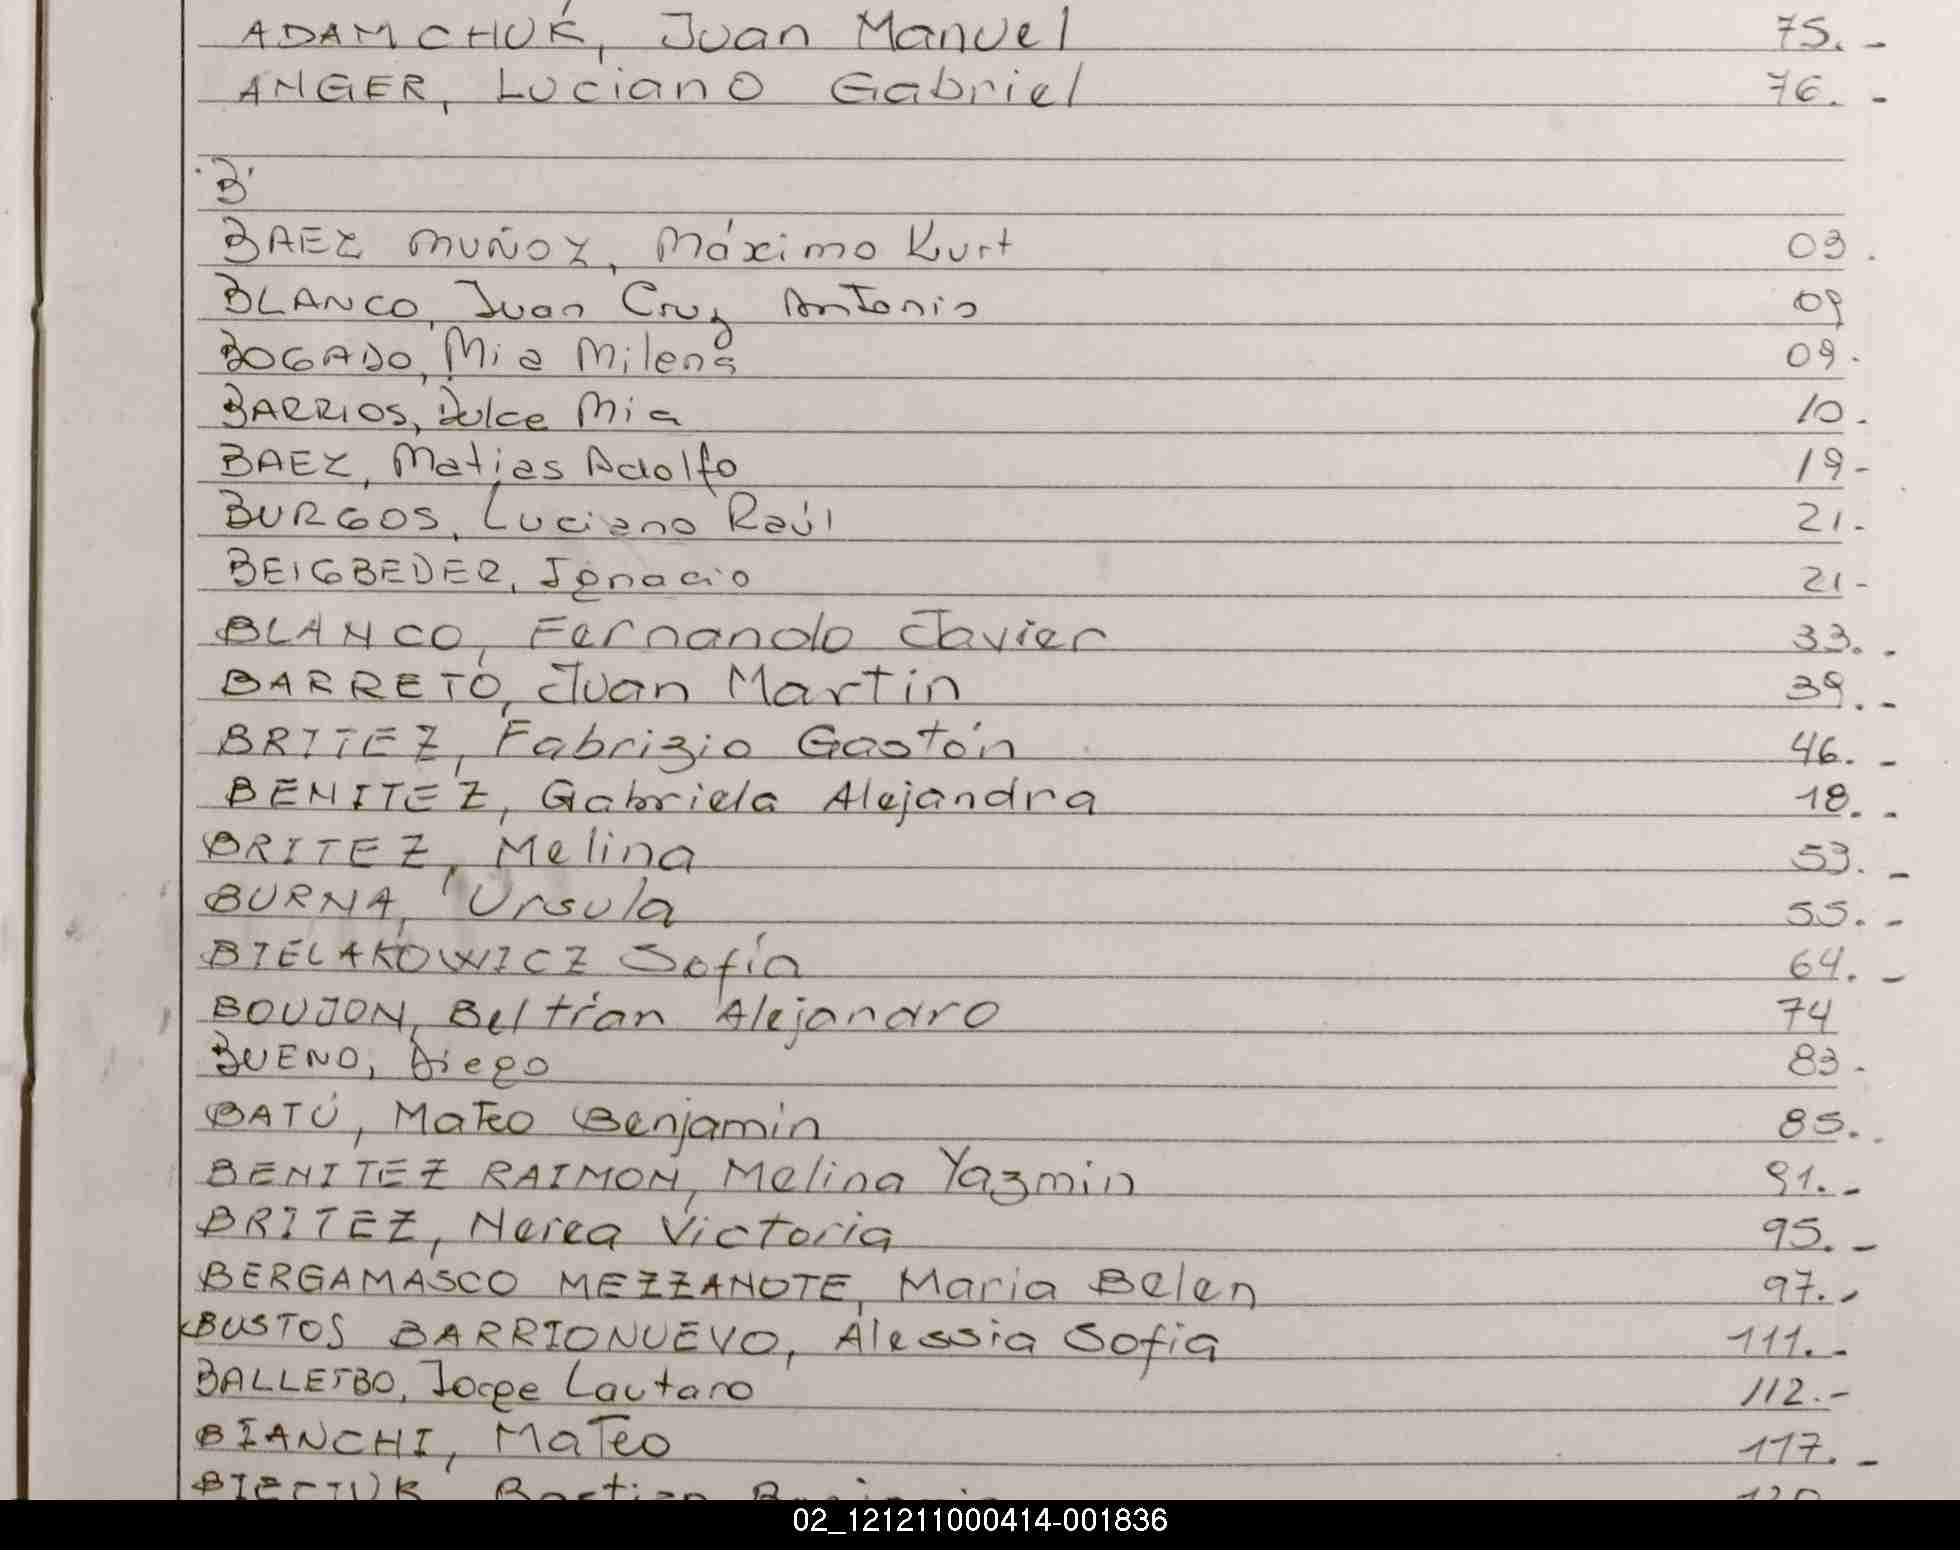 ADAMCHUK, Juan Manuel 75.-
ANGER, Luciano Gabriel 76.-
"B"
BAEZ MUÑOZ, Máximo Kurt 03.
BLANCO, Juan Cruz Antonio 09
BOGADO, Mia Milena 09.
BARRIOS, Dulce Mia 10.
BAEZ, Matias Adolfo 19-
BURGOS, Luciano Raúl 21.
BEIGBEDER, Ignacio 21-
BLANCO, Fernando Javier 33.-
BARRETO, Juan Martin 39.-
BRITEZ, Fabrizio Gastón 46.-
BENITEZ, Gabriela Alejandra 18.-
BRITEZ, Melina 53.-
BURNA, Ursula 55.-
BIELAKOWICZ Sofía 64.-
BOUJON, Beltran Alejandro 74
BUENO, Diego 83-
BATÚ, Mateo Benjamin 85.-
BENITEZ RAIMON, Melina Yazmin 91.-
BRITEZ, Nerea Victoria 95.-
BERGAMASCO MEZZANOTE, Maria Belen 97.-
BUSTOS BARRIONUEVO, Alessia Sofia 111.-
BALLETBO, Jorge Lautaro 112.-
BIANCHI, Mateo 117.-
02_121211000414-001836